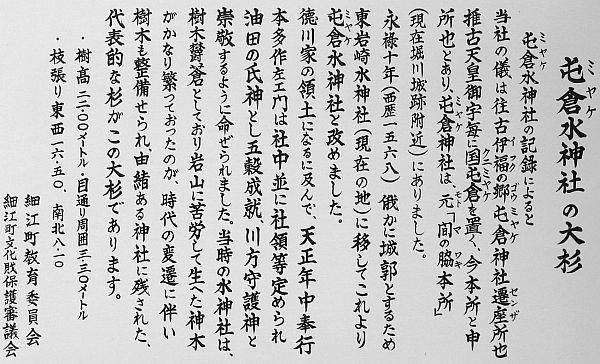 屯倉水神社の大杉
ミヤケ
屯倉水神社の記録によると
ミヤケ
当社の儀は往古伊福の郷屯倉神社遷座所也
イフク ゴウ ミヤケ センザ
推古天皇御宇毎に国屯倉を置く、今本所と申
クニミヤケ
所也とあり、屯倉神社は、元「間の脇本所」
ミヤケ モト マ ワキ
(現在堀川城跡附近)にありました。
永禄十年(西歴一五六八)俄かに城郭とするため
東岩崎水神社(現在の地)に移してこれより
屯倉水神社と改めました。
ミヤケ
徳川家の領土になるに及んで、天正年中奉行
本多作左エ門は社中並に社領等定められ
油田の氏神とし五穀成就、川方守護神と
崇敬するように命ぜられました。当時の水神社は、
樹木欝蒼としており岩山に苦労して生へた神木
がかなり繁つておったのが、時代の変遷に伴い
樹木も整備せられ、由緒ある神社に残された、
代表的な杉がこの大杉であります。
・樹高 二二・〇〇メートル・目通り周囲 三・三〇メートル
・枝張り東西一六・五〇、南北八・一〇
細江町教育委員会
細江町文化財保護審議会